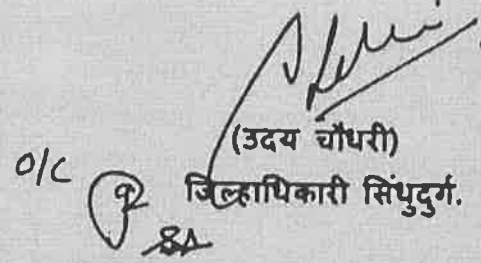 (उदय चौधरी)
O/C जिल्हाधिकारी सिंधुदुर्ग.